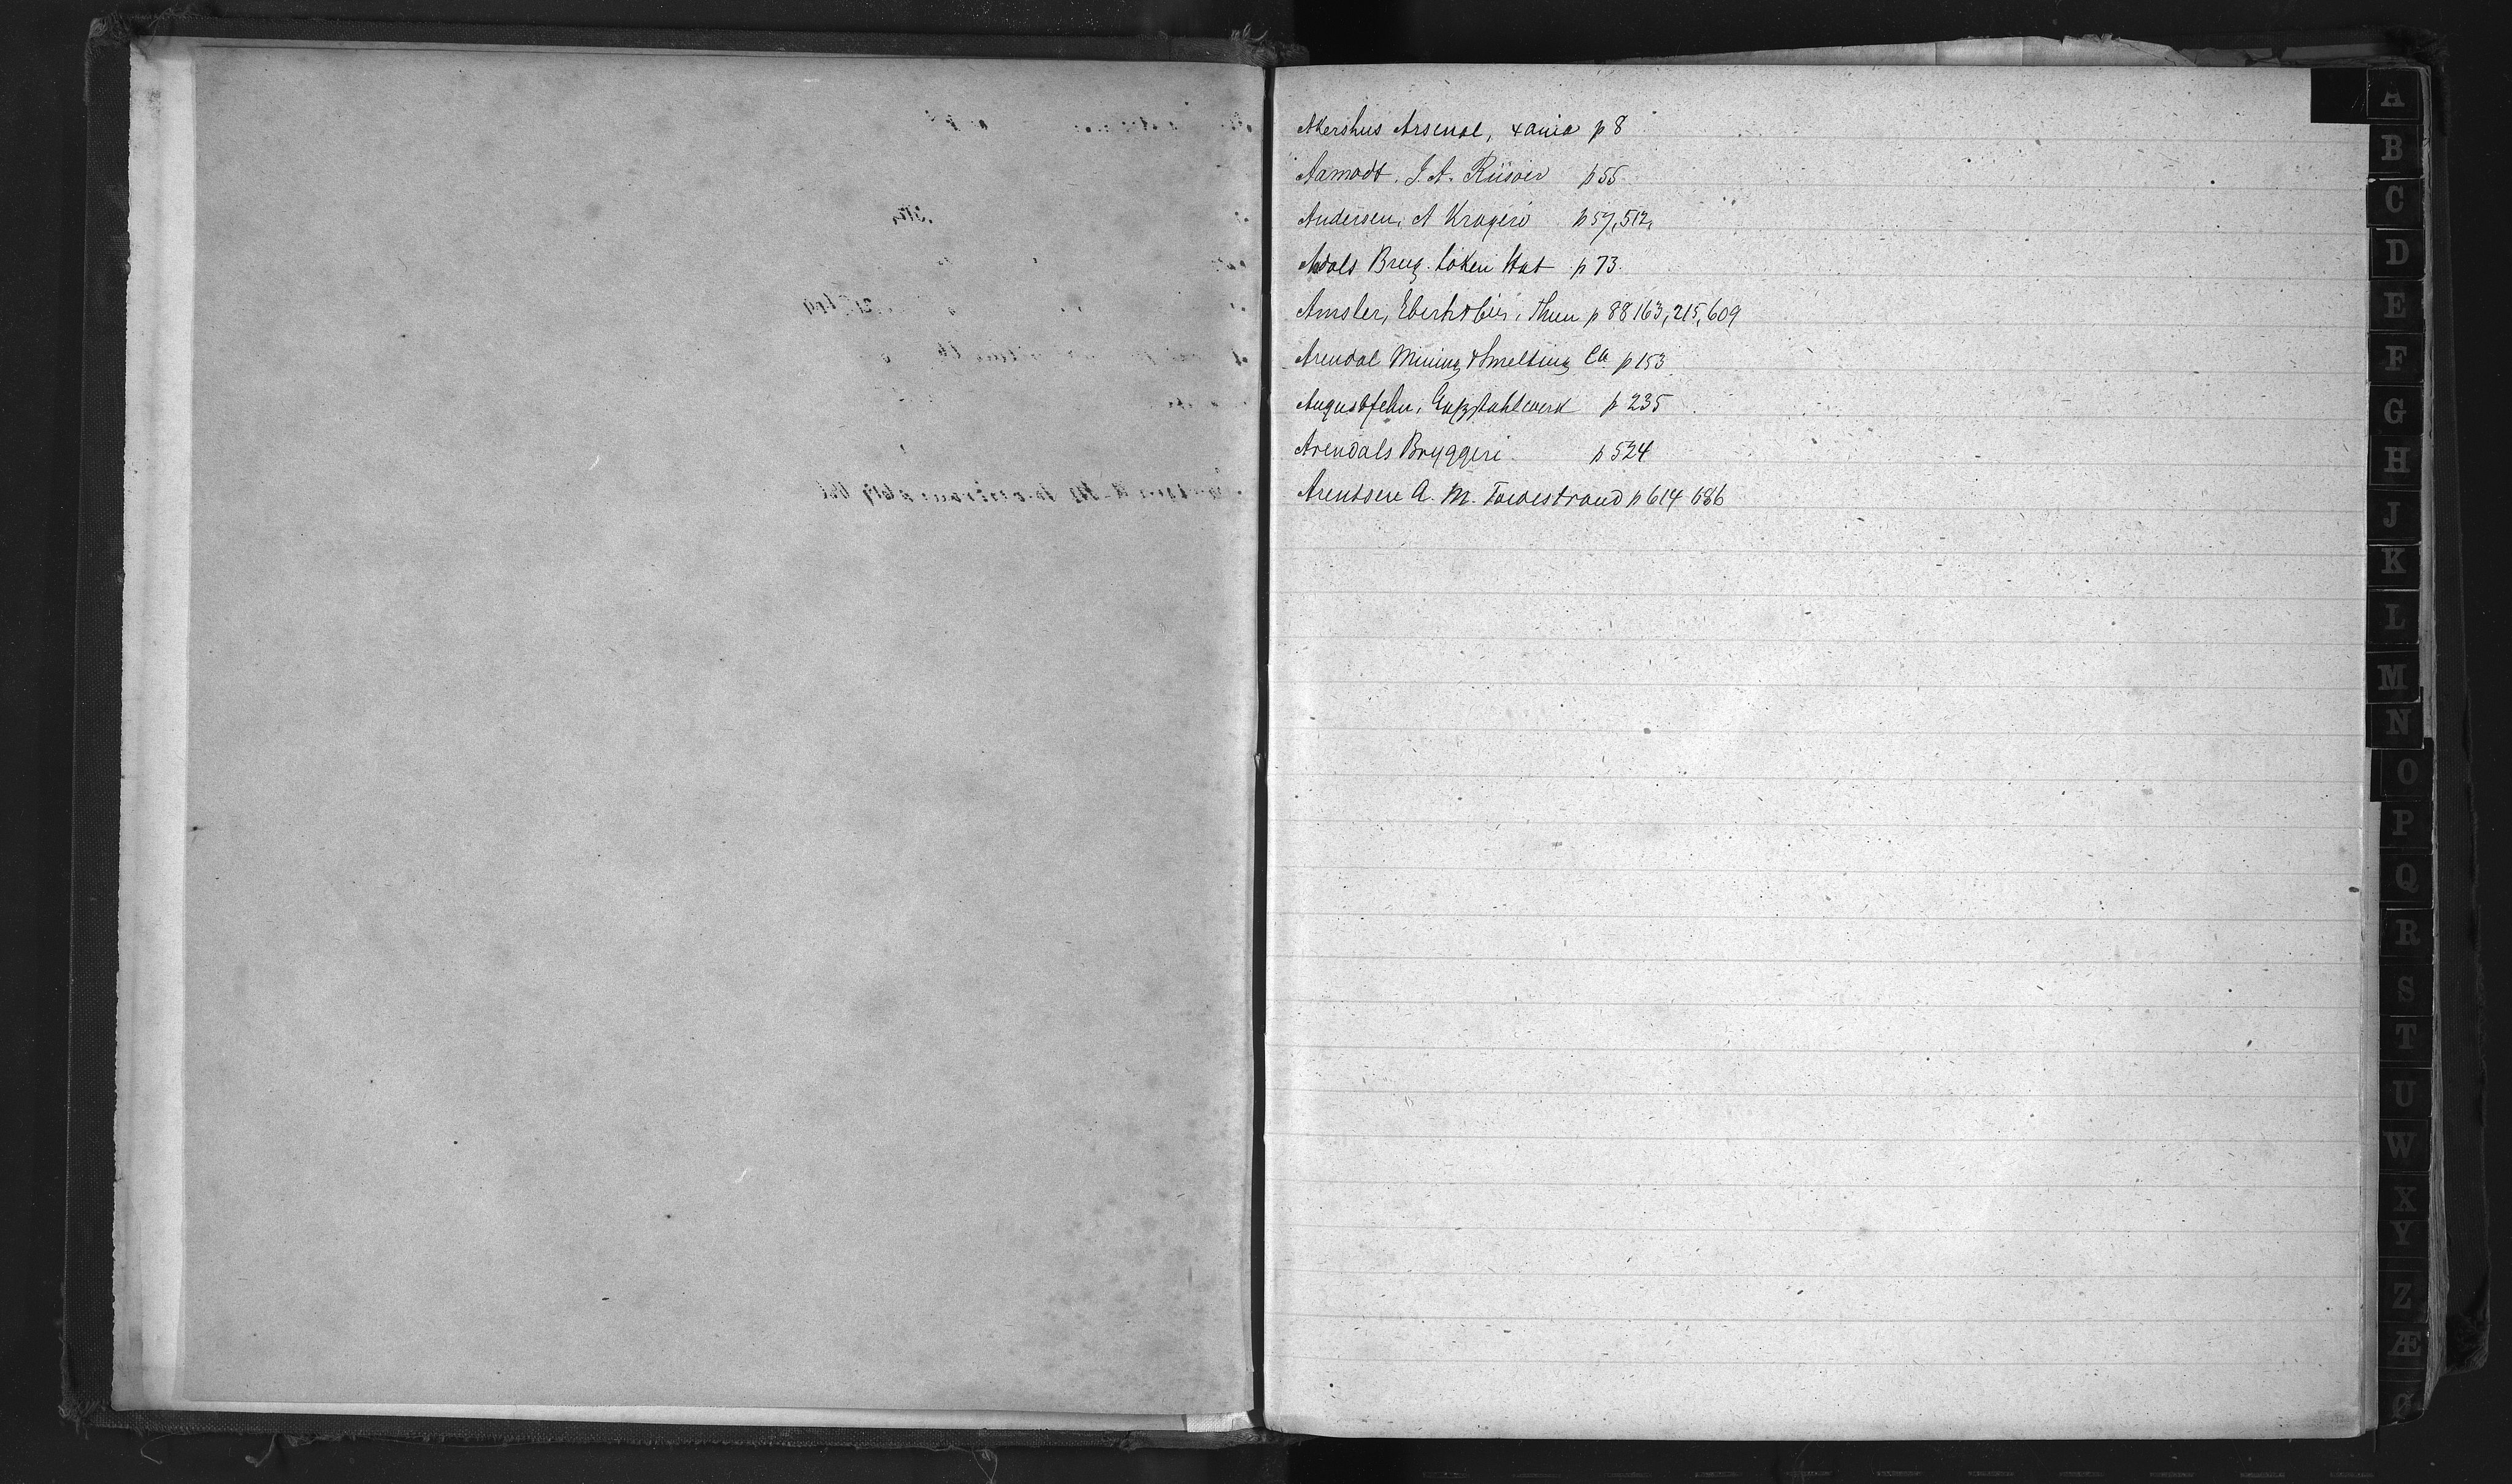 Akershus Arsenal, Xania p 8
Aamodt, J. A. Riisøer p 55
Andersen, A Kragerö p 57, 512,
Adals Brug. Löken Höl p 73
Amsler, Eberh Thun p 88 163, 215, 609
Arendal Mining & Smelting Co p 153
Augustfehn, Gußstahlwerk p 235
Arendals Bryggeri p 524
Arentsen A. M. Tvedestrand p 614 686
A
B
C
D
E
F
G
H
J
K
L
M
N
O
P
Q
R
S
T
U
W
X
Y
Z
Æ
Ø